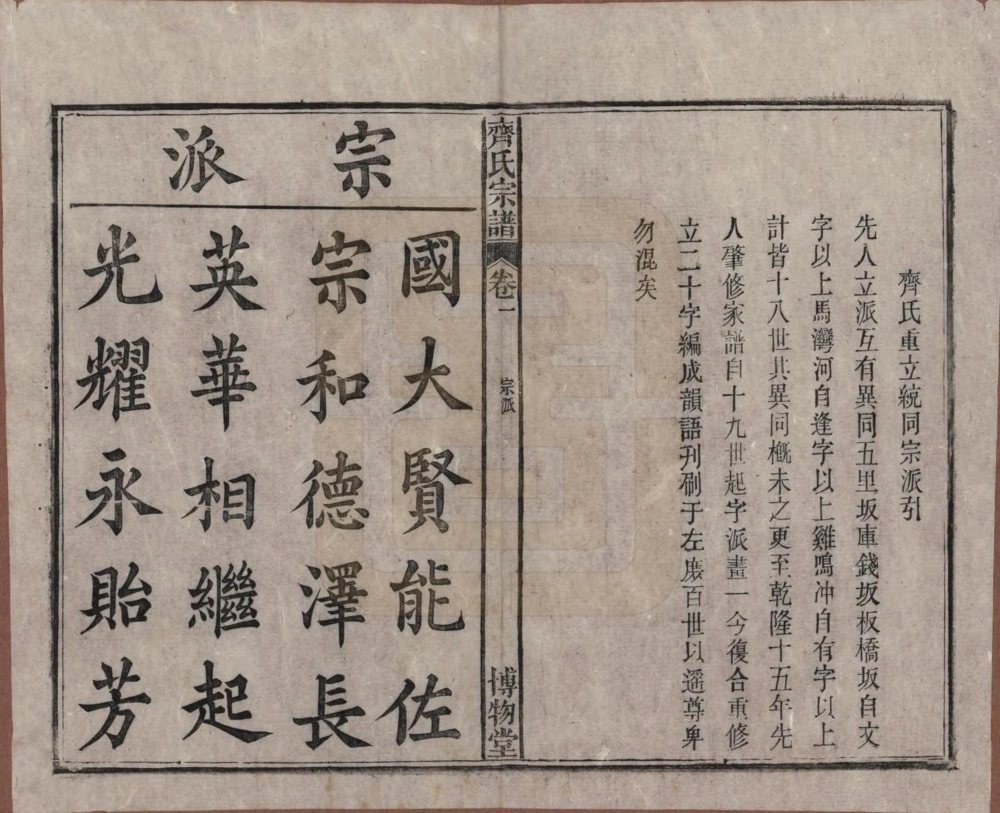 齊氏重立統同宗派引
先人立派互有異同五里坂車錢坂板橋坂自文
字以上馬灣河自逢字以上雞鳴冲自有字以上
計皆十八世其異同槪未之更至乾隆十五年先
人肇修家譜自十九世起字派畫一今復合重修
立二十字編成韻語刋刷于左庻百世以遥尊卑
勿混矣
齊氏宗譜
卷一
宗派
博物堂
宗派
國大賢能佐
宗和德澤長
英華相繼起
光耀永貽芳